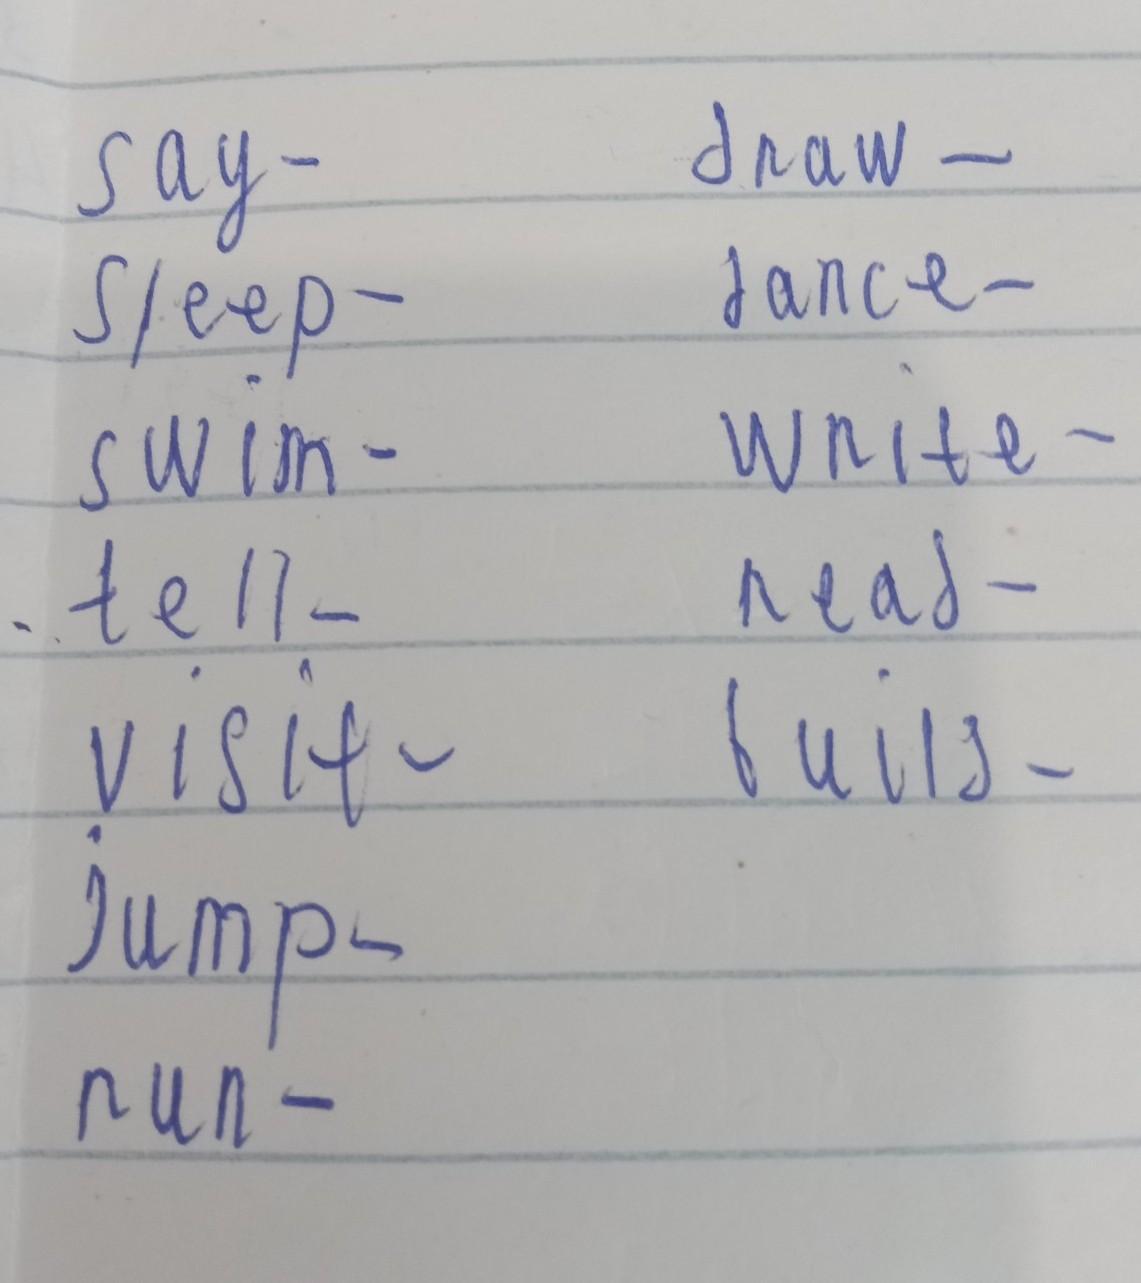 say-
sleep-
swim-
tell-
visit-
jump-
run-
draw-
dance-
write-
read-
build-